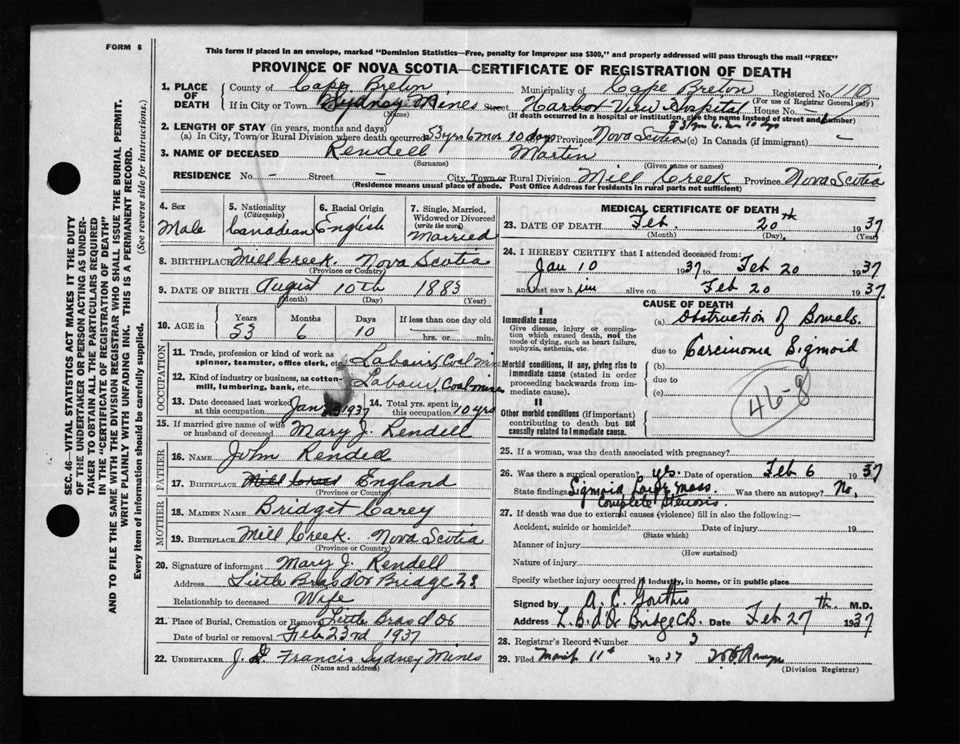 FORM 6
This form if placed in an envelope, marked "Dominion Statistics—Free, penalty for improper use $300," and properly addressed will pass through the mail "FREE"
PROVINCE OF NOVA SCOTIA—CERTIFICATE OF REGISTRATION OF DEATH
SEC. 46—VITAL STATISTICS ACT MAKES IT THE DUTY
OF THE UNDERTAKER OR PERSON ACTING AS UNDER-
TAKER TO OBTAIN ALL THE PARTICULARS REQUIRED
IN THE "CERTIFICATE OF REGISTRATION OF DEATH"
AND TO FILE THE SAME WITH THE DIVISION REGISTRAR WHO SHALL ISSUE THE BURIAL PERMIT.
WRITE PLAINLY WITH UNFADING INK. THIS IS A PERMANENT RECORD.
Every item of information should be carefully supplied. (See reverse side for instructions.)
1. PLACE OF DEATH County of Cape Breton Municipality of Cape Breton Registered No. 1110
(For use of Registrar General only)
If in City or Town Sydney Mines Street Harbor View Hospital House No. -
(Name) (If death occurred in a hospital or institution, give the name instead of street and number)
2. LENGTH OF STAY (in years, months and days)
(a) In City, Town or Rural Division where death occurred 53 yrs 6 mos 10 days Province Nova Scotia (c) In Canada (if immigrant) -
3. NAME OF DECEASED Rendell Martin
(Surname) (Given name or names)
RESIDENCE No. - Street - City, Town or Rural Division Mill Creek Province Nova Scotia
(Residence means usual place of abode. Post Office Address for residents in rural parts not sufficient)
4. Sex Male
5. Nationality (Citizenship) Canadian
6. Racial Origin English
7. Single, Married, Widowed or Divorced (write the word) Married
8. BIRTHPLACE Mill Creek Nova Scotia
(Province or Country)
9. DATE OF BIRTH August 10th 1883
(Month) (Day) (Year)
10. AGE in Years 53 Months 6 Days 10 If less than one day old
hrs. or min.
OCCUPATION
11. Trade, profession or kind of work as spinner, teamster, office clerk, etc. Labour, Coal mine
12. Kind of industry or business, as cotton-mill, lumbering, bank, etc. Labour, Coal mines
13. Date deceased last worked at this occupation Jan 1937 14. Total yrs. spent in this occupation 10 yrs
15. If married give name of wife or husband of deceased Mary J. Rendell
FATHER
16. NAME John Rendell
17. BIRTHPLACE Mill Creek England
(Province or Country)
MOTHER
18. MAIDEN NAME Bridget Carey
19. BIRTHPLACE Mill Creek Nova Scotia
(Province or Country)
20. Signature of informant Mary J. Rendell
Address Little Bras d'or Bridge N.S
Relationship to deceased Wife
21. Place of Burial, Cremation or Removal Little Bras d Or
Date of burial or removal Feb 23rd 1937
22. UNDERTAKER J. Francis Sydney Mines
(Name and address)
MEDICAL CERTIFICATE OF DEATH
23. DATE OF DEATH Feb. 20th 1937
(Month) (Day) (Year)
24. I HEREBY CERTIFY that I attended deceased from:
Jan 10 1937 to Feb 20 1937
and last saw h im alive on Feb 20 1937.
CAUSE OF DEATH
I
Immediate cause
Give disease, injury or complication which caused death, not the mode of dying, such as heart failure, asphyxia, asthenia, etc.
(a) Obstruction of Bowels.
due to Carcinoma Sigmoid
Morbid conditions, if any, giving rise to immediate cause (stated in order proceeding backwards from immediate cause).
(b)
due to
(c)
46-8
II
Other morbid conditions (if important) contributing to death but not causally related to immediate cause.
25. If a woman, was the death associated with pregnancy?
26. Was there a surgical operation? yes. Date of operation Feb 6 1937
State findings Sigmoid Large mass Was there an autopsy? No.
Complete Stenosis.
27. If death was due to external causes (violence) fill in also the following:—
Accident, suicide or homicide? Date of injury 19
(State which)
Manner of injury
(How sustained)
Nature of injury
Specify whether injury occurred in industry, in home, or in public place
Signed by A. C. M.D.
Address L. B. d'Or Bridge C.B. Date Feb 27th 1937
28. Registrar's Record Number 3
29. Filed March 11th 1937
(Division Registrar)